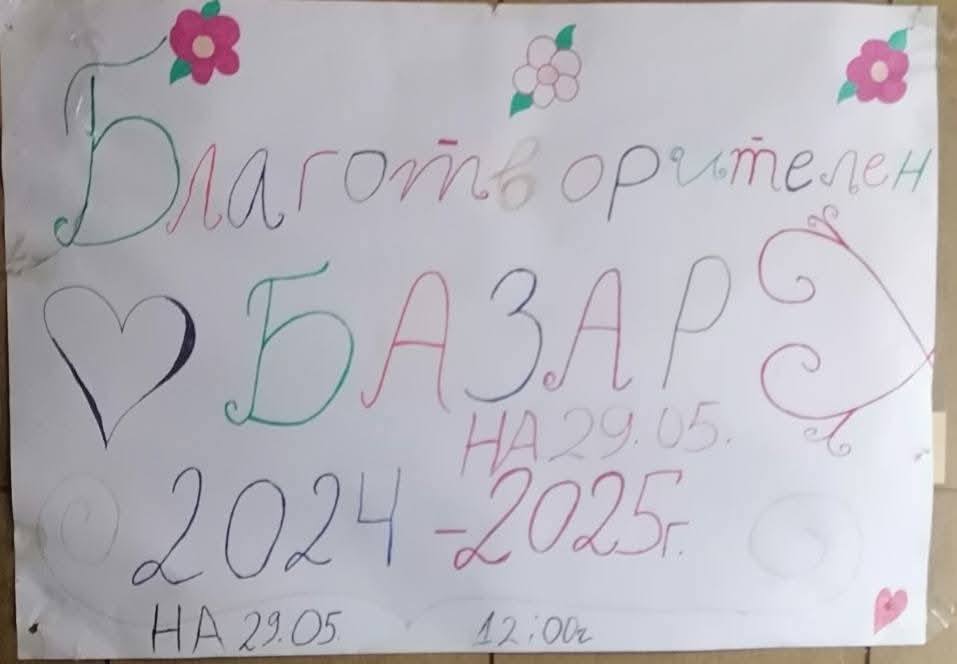 Благотворителен
БАЗАР
НА 29.05.
2024-2025г.
НА 29.05. 12:00г